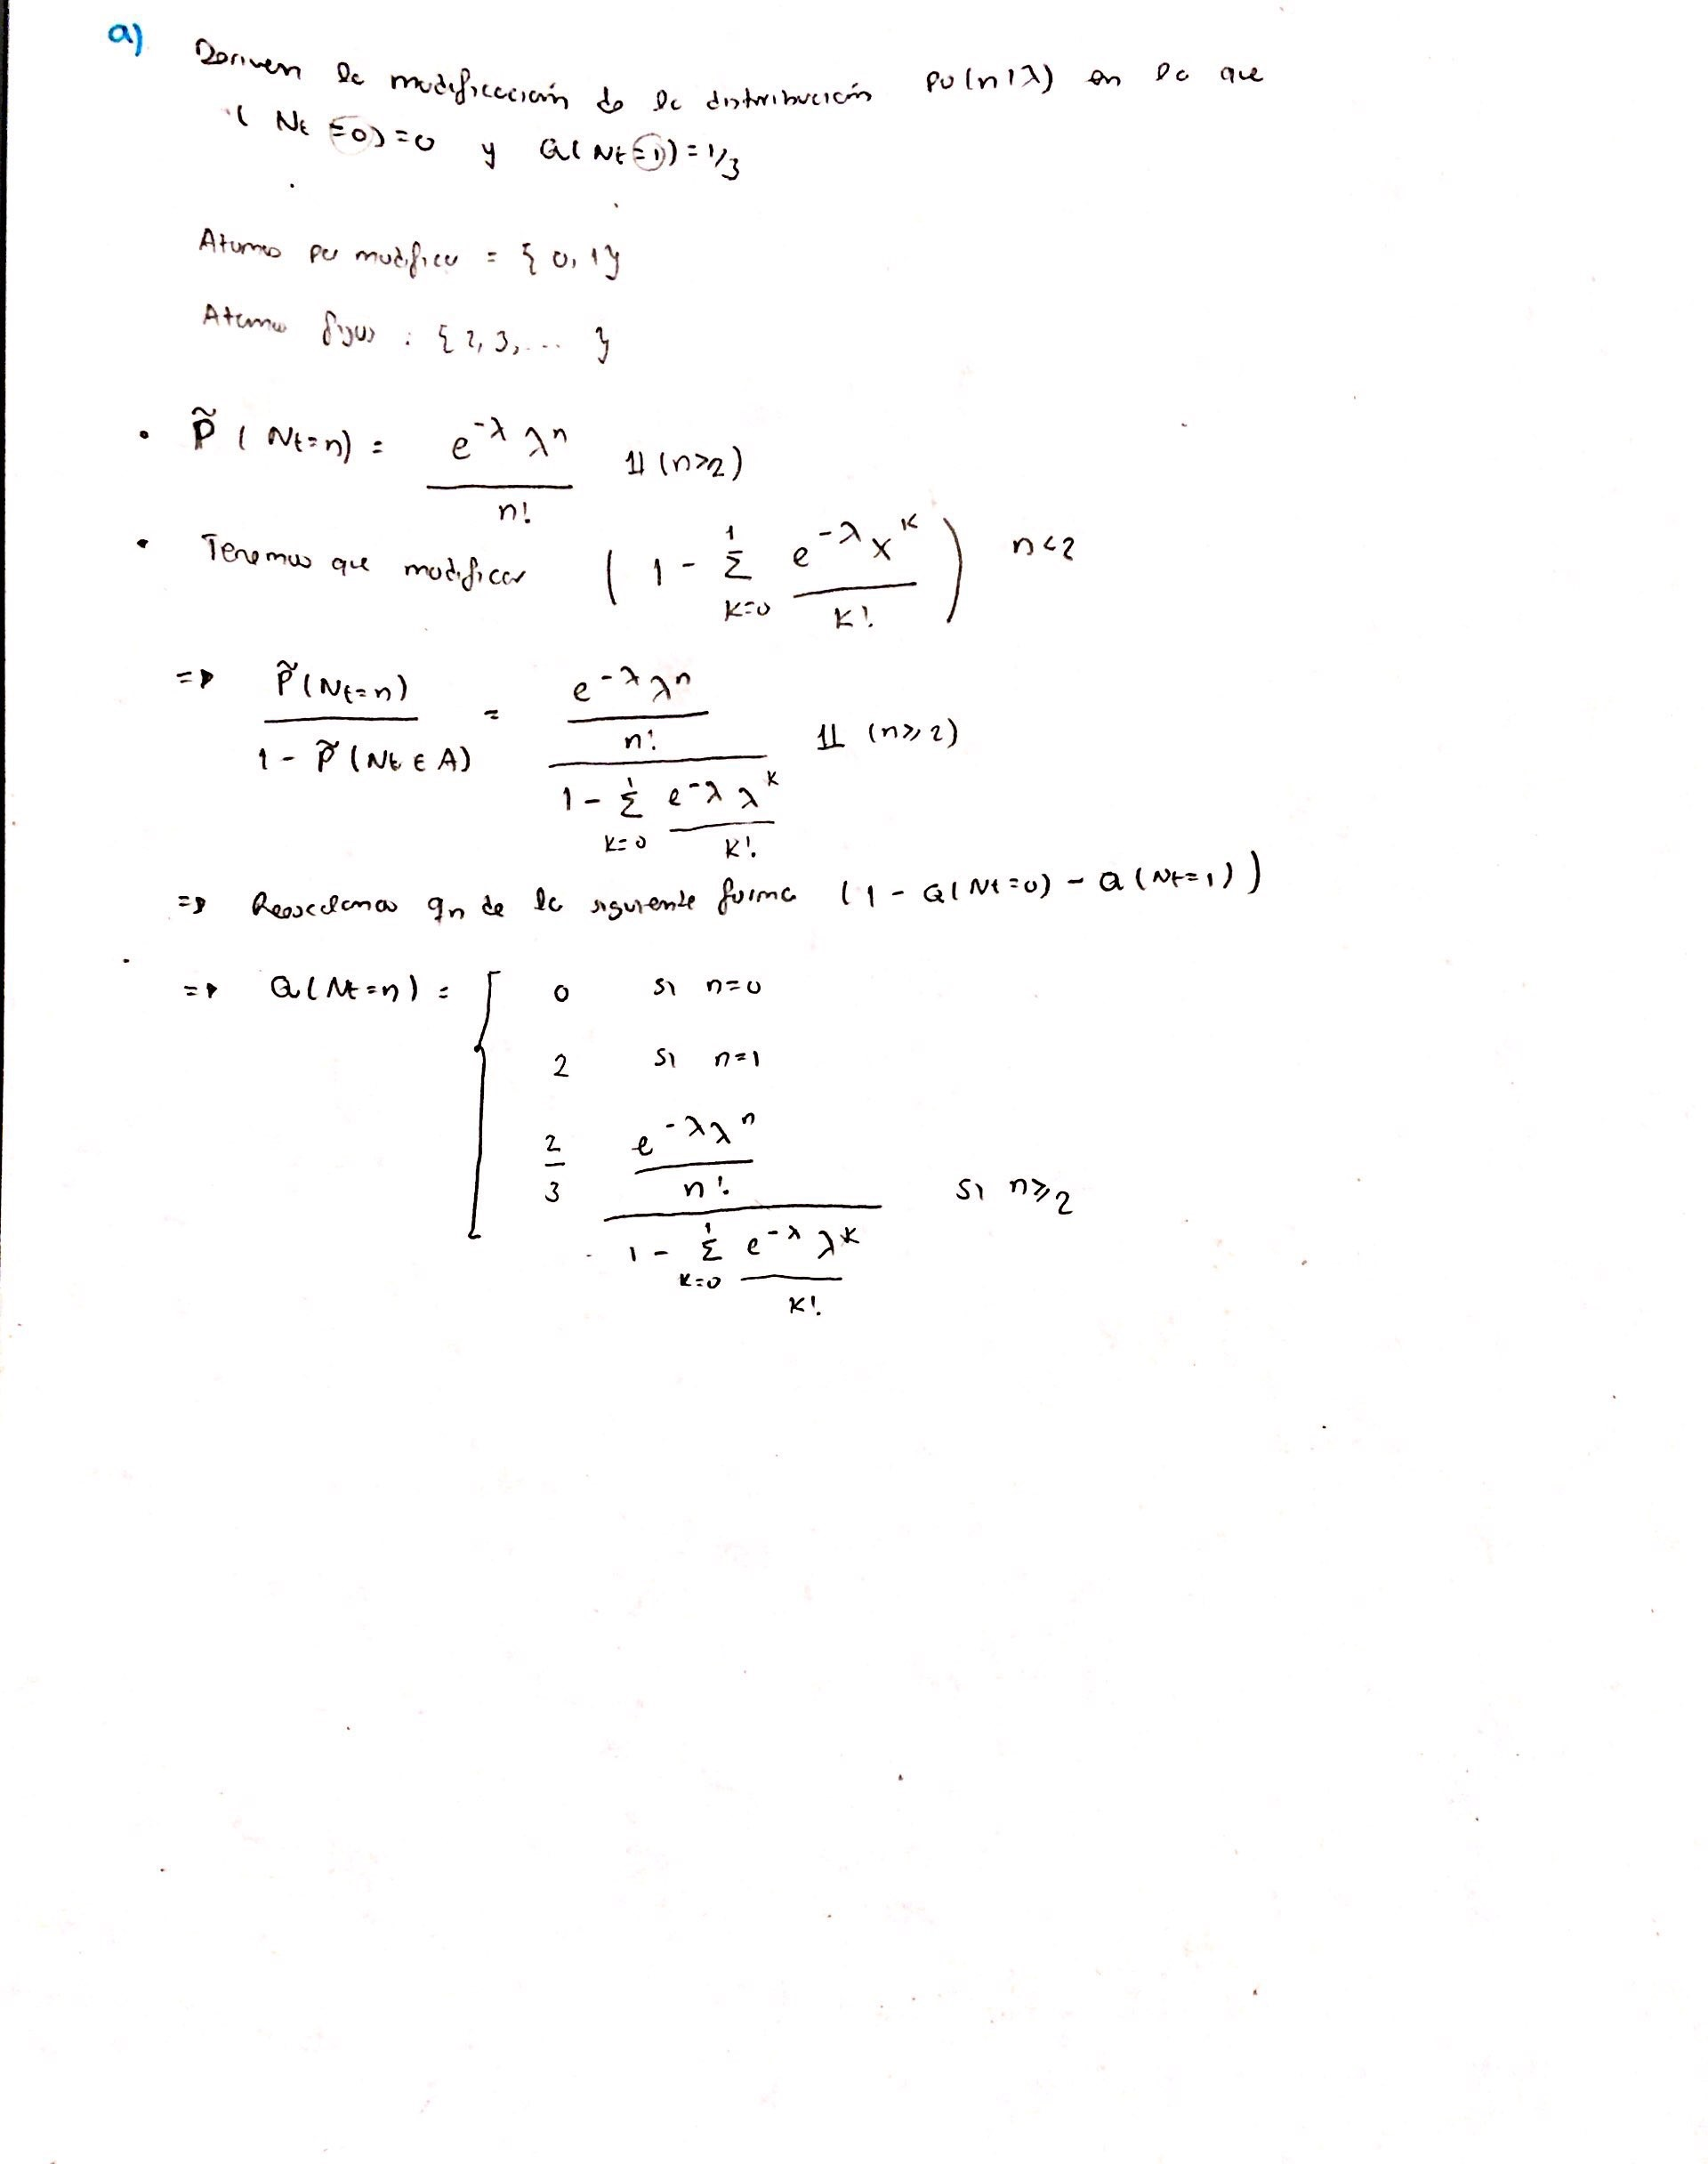 a) Deriven la modificación de la distribución Po(n|λ) en la que
( Nt =0)=0 y Q(Nt=1)=1/3
Atomos modifico = {0, 1}
Atomos fijos : {2, 3, ... }
• P̃ ( Nt=n) = e^{-λ} λ^n / n! 𝟙 (n>2)
• Tenemos que modificar ( 1 - Σ_{k=0}^{1} e^{-λ} x^k / k! ) n<2
=> P̃(Nt=n) / 1 - P̃(Nt ∈ A) = (e^{-λ} λ^n / n!) / (1 - Σ_{k=0}^{1} e^{-λ} λ^k / k!) 𝟙 (n≥2)
=> Reescalamos qn de la siguiente forma (1 - Q(Nt=0) - Q(Nt=1))
=> Q(Nt=n) = { 0 si n=0
2 si n=1
2/3 (e^{-λ} λ^n / n!) / (1 - Σ_{k=0}^{1} e^{-λ} λ^k / k!) si n≥2